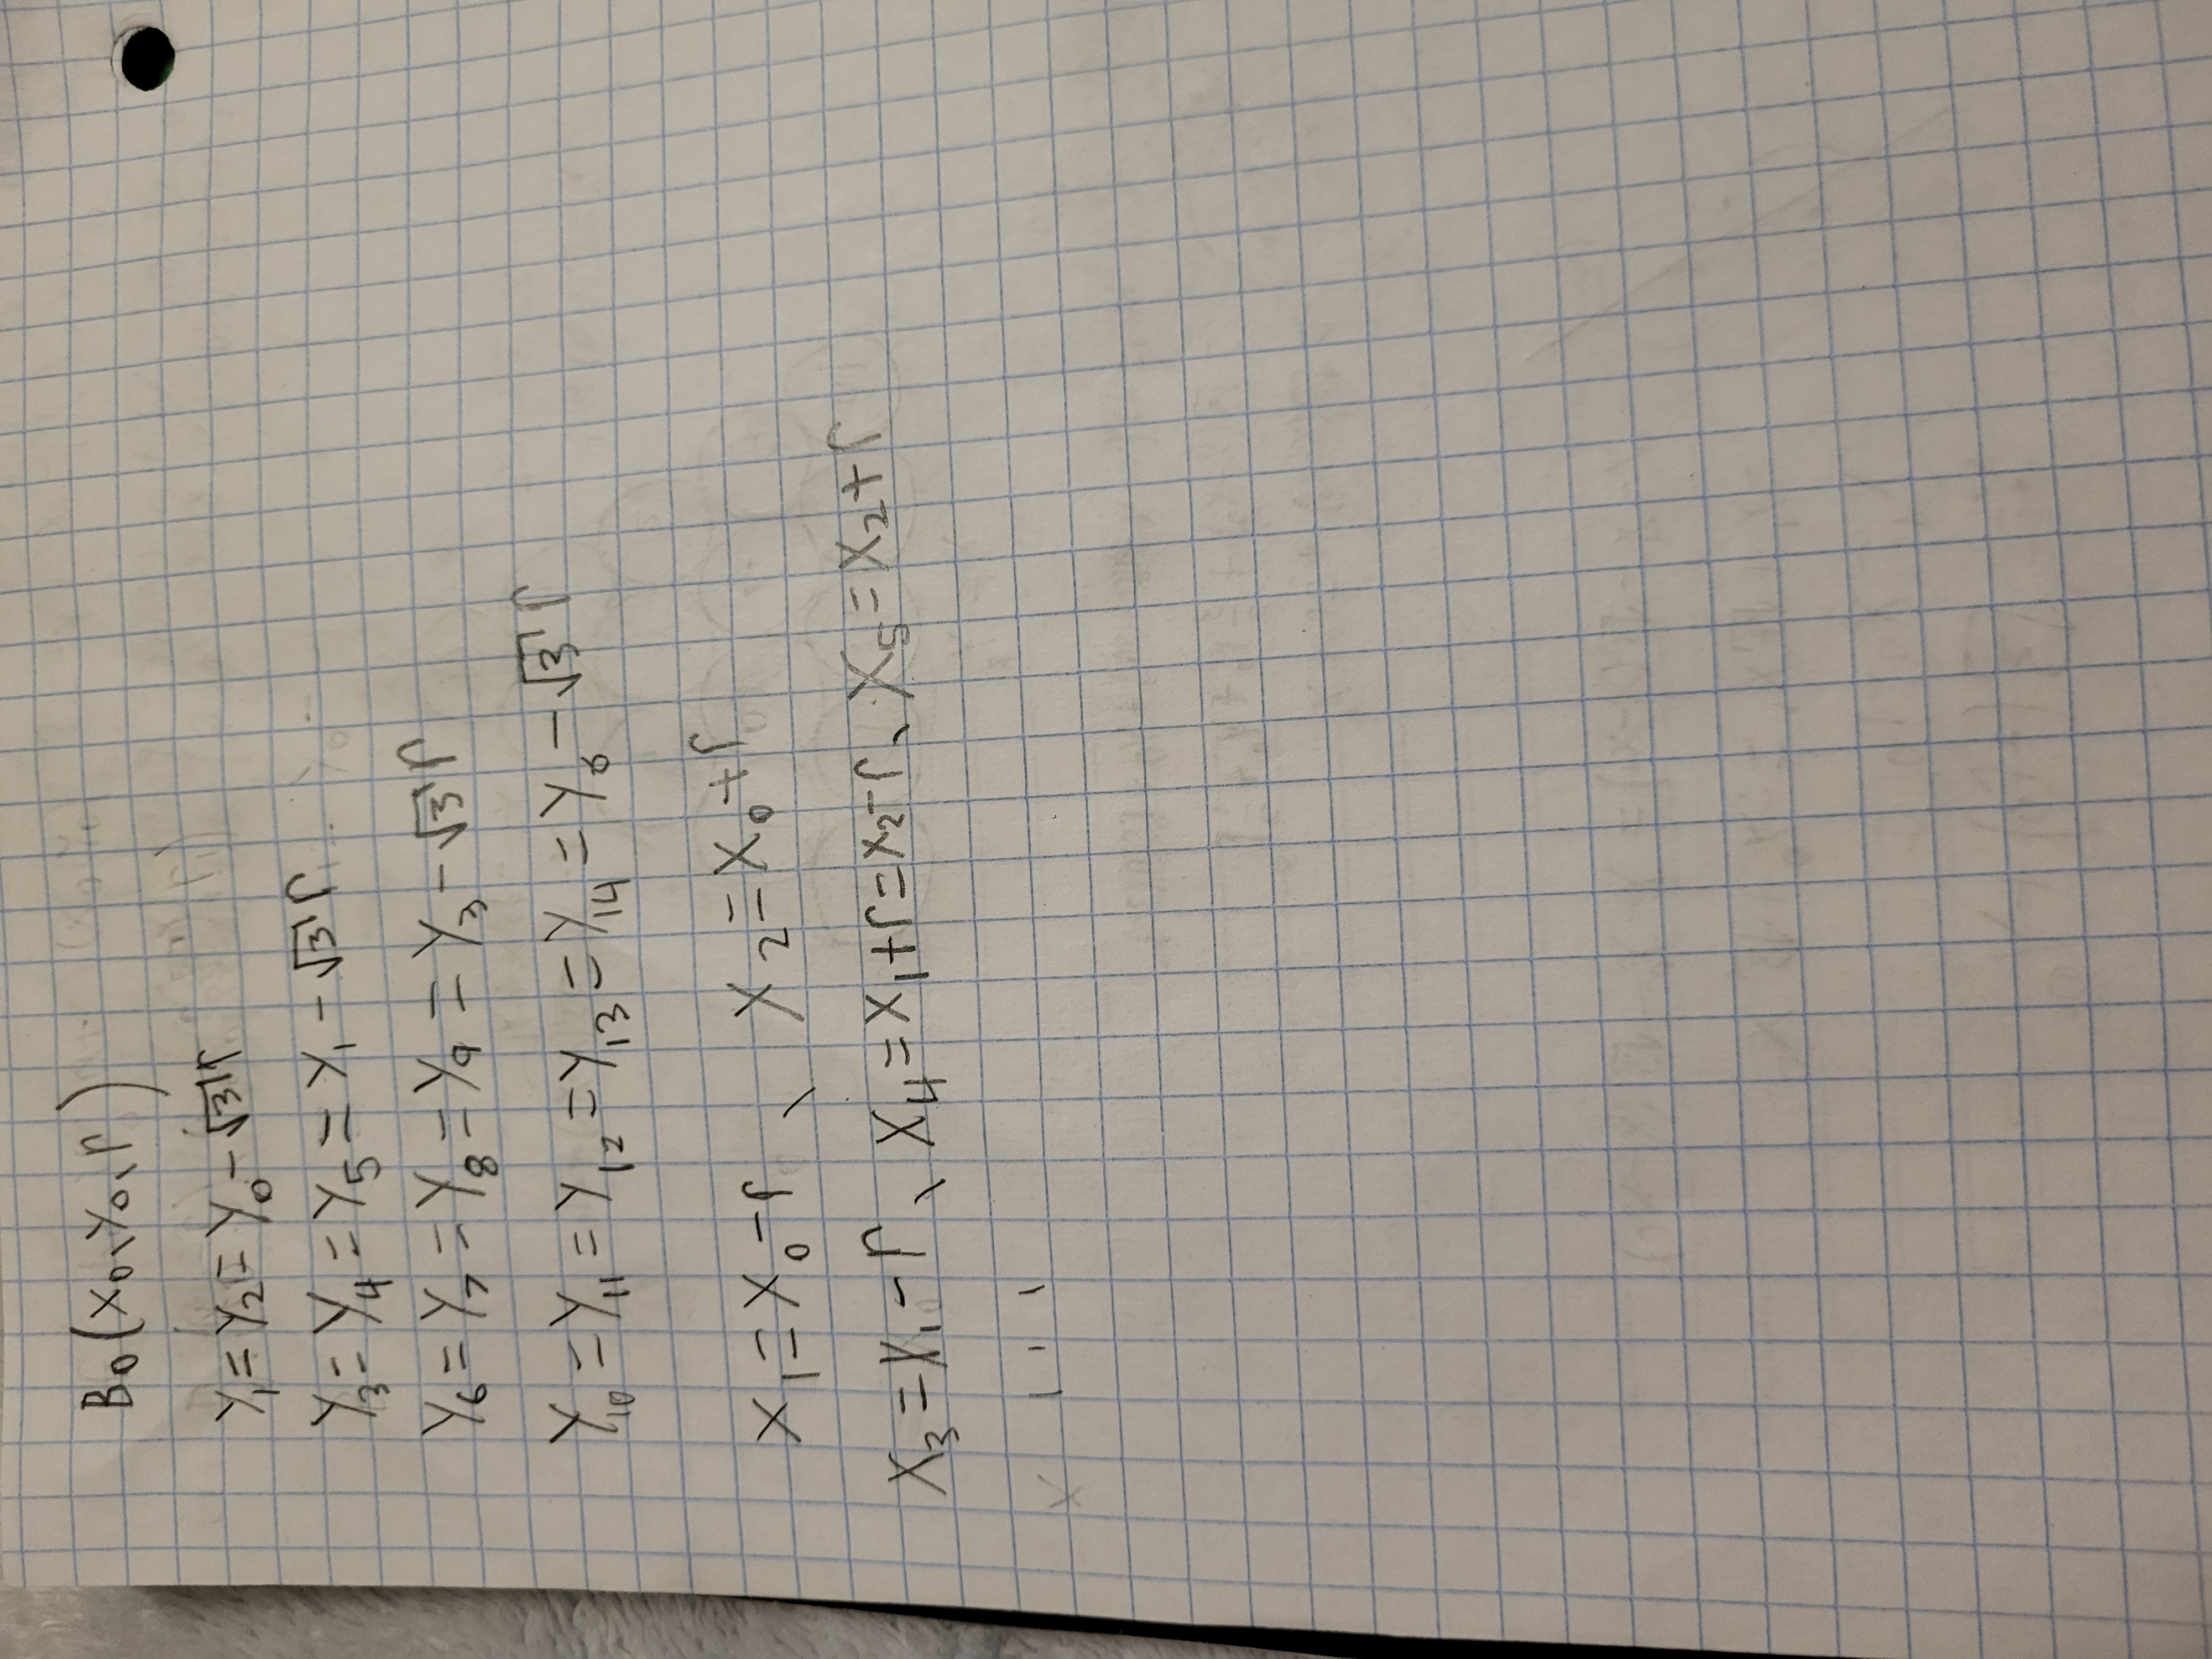 B₀(x₀、y₀、r)
y₁=y₂=y₀-√3r
y₃=y₄=y₅=y₁-√3r
y₆=y₇=y₈=y₉=y₃-√3r
y₁₀=y₁₁=y₁₂=y₁₃=y₁₄=y₆-√3r
x₁=x₀-r、x₂=x₀+r
x₃=x₁-r、x₄=x₁+r=x₂-r、x₅=x₂+r
x ...